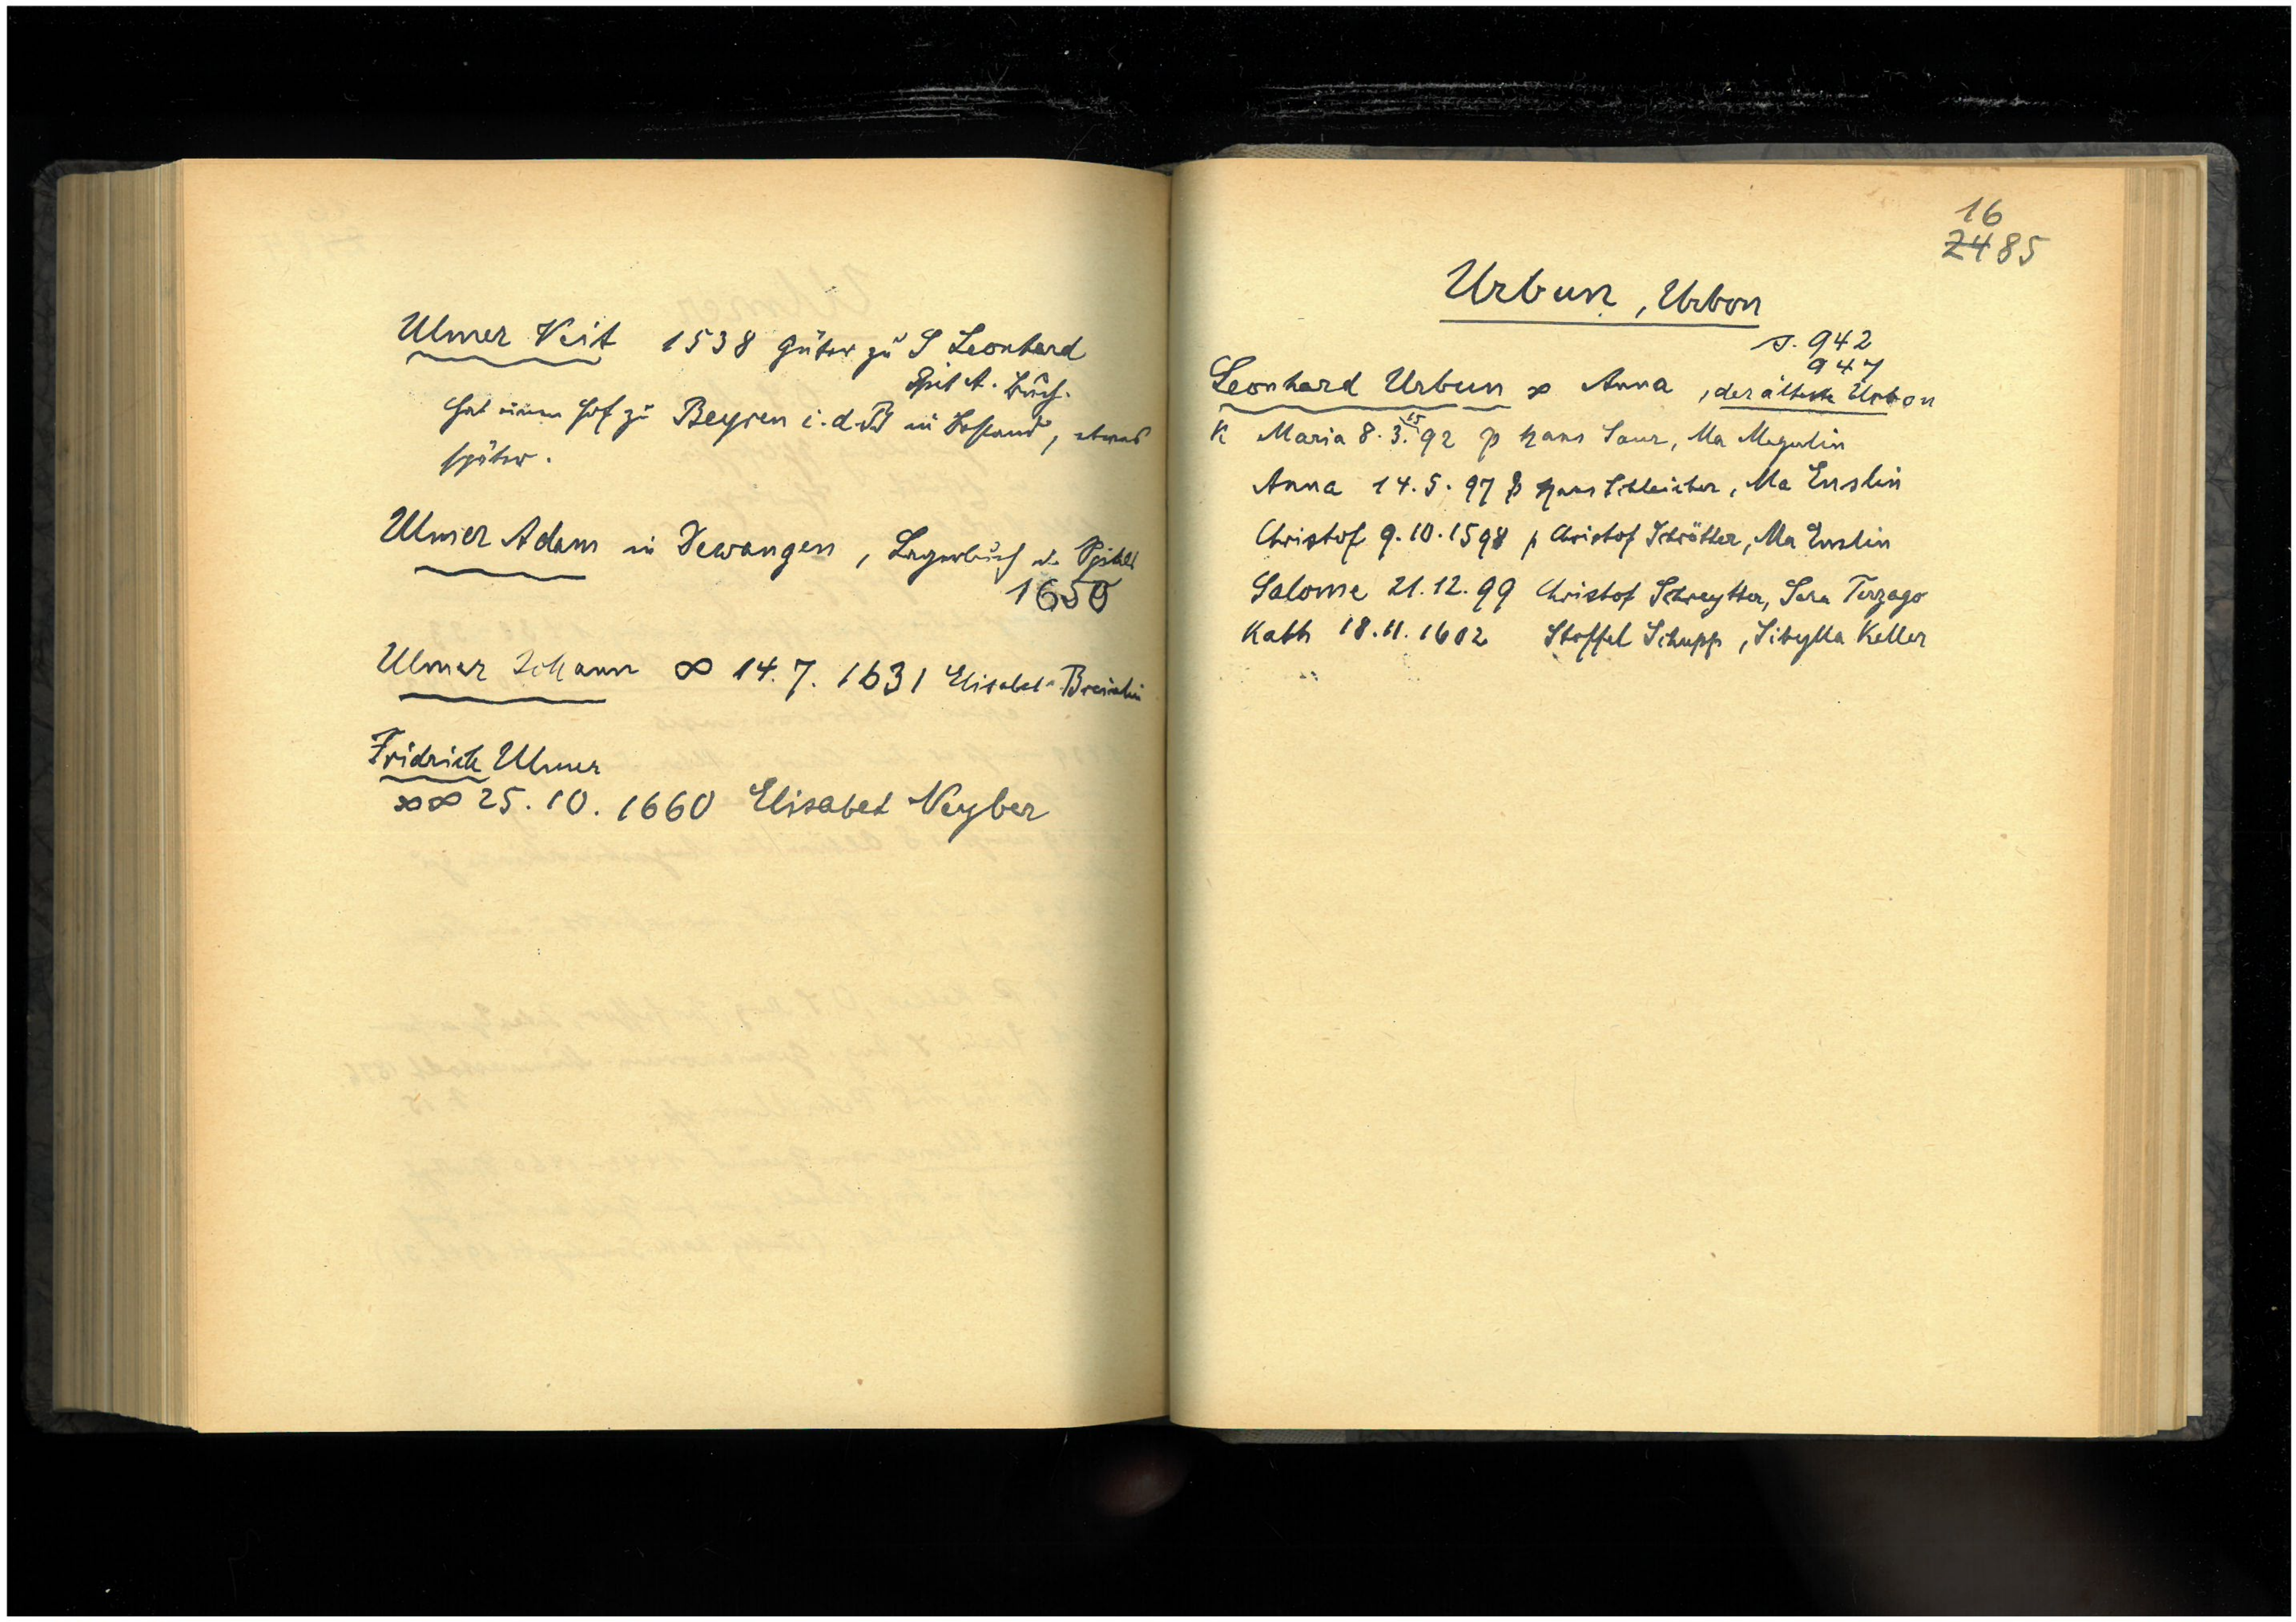 Ulmer Veit 1538 Güter zu S Leonhard
Spit A. Buch.
hat einen Hof zu Beyren i. d. in Bestand, etwas
später.
Ulmer Adam in Dewangen, Lagerbuch d. Spitals
1650
Ulmer Johann ∞ 14.7.1631 Elisabet
Fridrich Ulmer
∞∞ 25.10.1660 Elisabet Neyber
16
2485
Urbun, Urbon
s. 942
947
Leonhard Urbun ∞ Anna, der älteste Urbon
K Maria 8.3.15 92 p Hans Saur, Ma
Anna 14.5.97 p Hans Schleicher, Ma Enslin
Christof 9.10.1598 p Christof Schrötter, Ma Enslin
Salome 21.12.99 Christof Schreytter, Sara Terzago
Kath 18.11.1602 Stoffel Schupp, Sibylla Keller